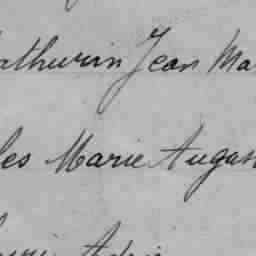 athurin Jean Ma
les Marie Augus